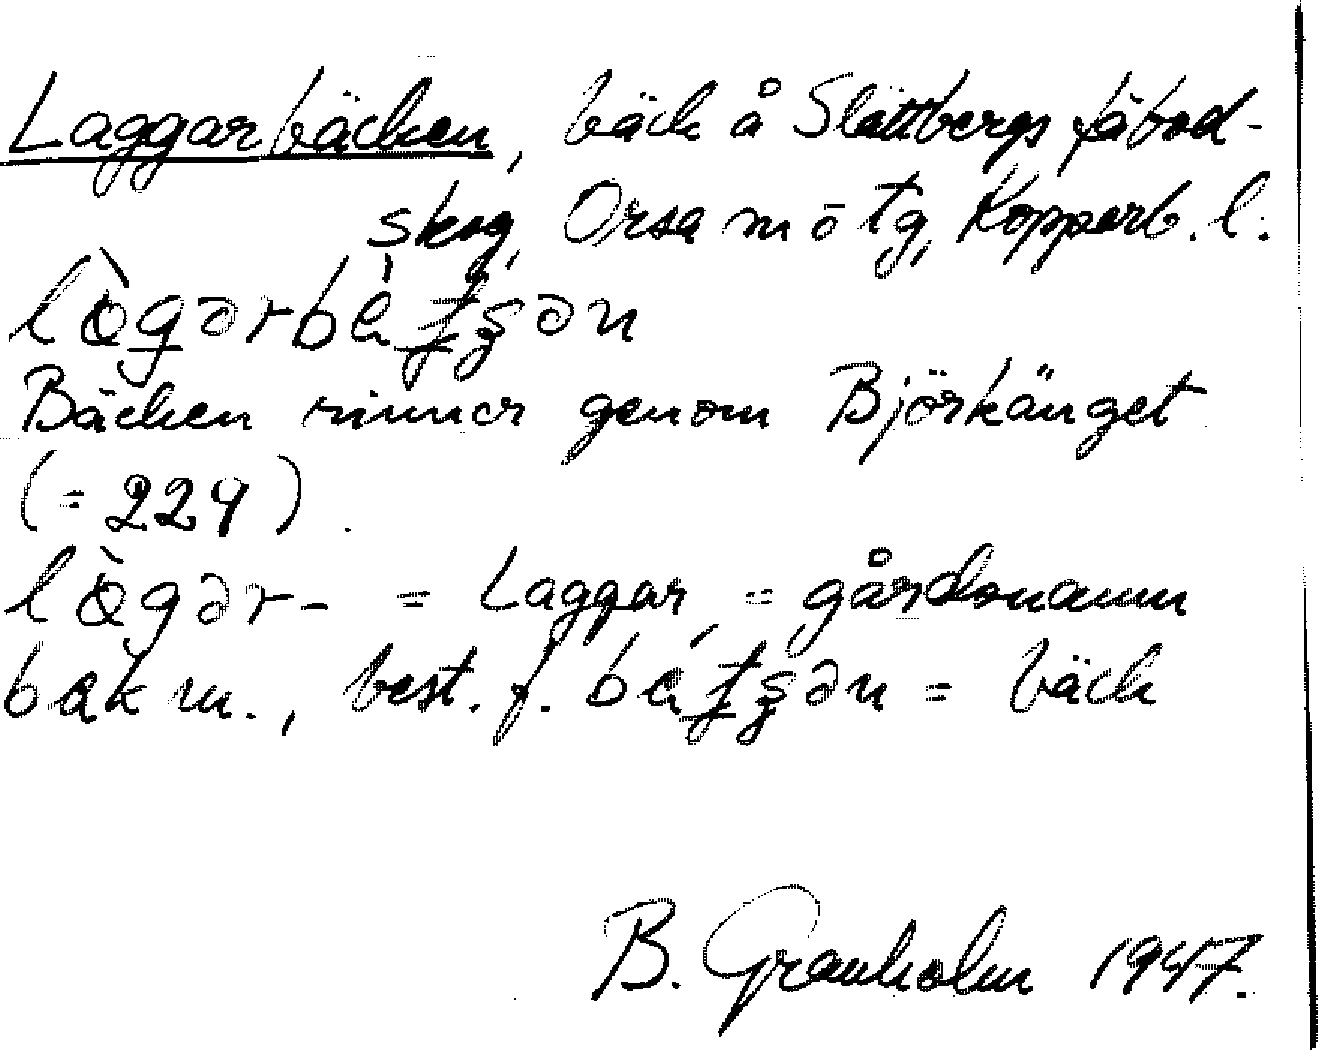 Laggarbäcken, bäck å Slättbergs fäbod-
skog, Orsa m ō tg, Kopparb. l.
Bäcken rinner genom Björkänget
(= 224).
= Laggar, = gårdsnamn
bak m., best. f. = bäck
B. Granholm 1947.